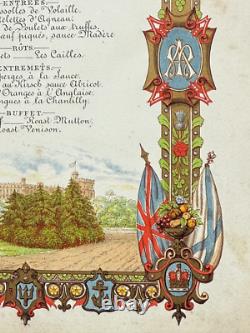 ENTRÉES.
ssolles de Volaille.
telettes d'Agneau.
de Poulets aux truffes.
auf piqués, sauce Madère
RÔTS.
ets — Les Cailles.
ENTREMETS.
perges à la sauce.
au Kirsch sauce Abricot.
d'Oranges à l'Anglaise.
ngues à la Chantilly.
BUFFET.
f — Roast Mutton.
oast Venison.